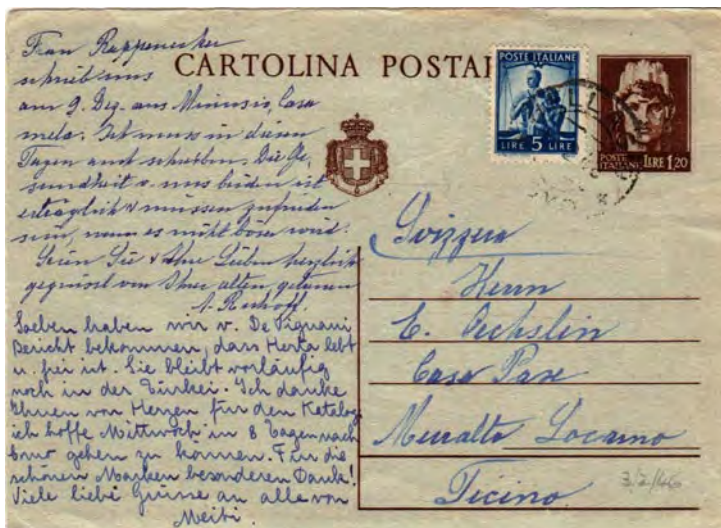 Frau Ruppenecker
schrieb uns
CARTOLINA POSTAL
am 9. Dez. aus Minusio, Casa
mela. Ich muss in diesen
Tagen auch schreiben. Die Ge-
sundheit v. uns beiden ist
erträglich & müssen zufrieden
sein, wenn es nicht böser wird.
Seien Sie & Ihre Lieben herzlich
gegrüsst von Ihrer alten, getreuen
Soeben haben wir v. De Pignani
Bericht bekommen, dass Herta lebt
u. frei ist. Sie bleibt vorläufig
noch in der Türkei. Ich danke
Ihnen von Herzen für den Katalog
ich hoffe Mittwoch in 8 Tagen nach
gehen zu können. Für die
schönen Marken besonderen Dank!
Viele liebe Grüsse an alle von
Meiti.
POSTE ITALIANE
LIRE 5 LIRE
POSTE
ITALIANE LIRE 1,20
Svizzera
Herrn
E. Oechslin
Casa Pax
Muralto Locarno
Ticino
3/2/46